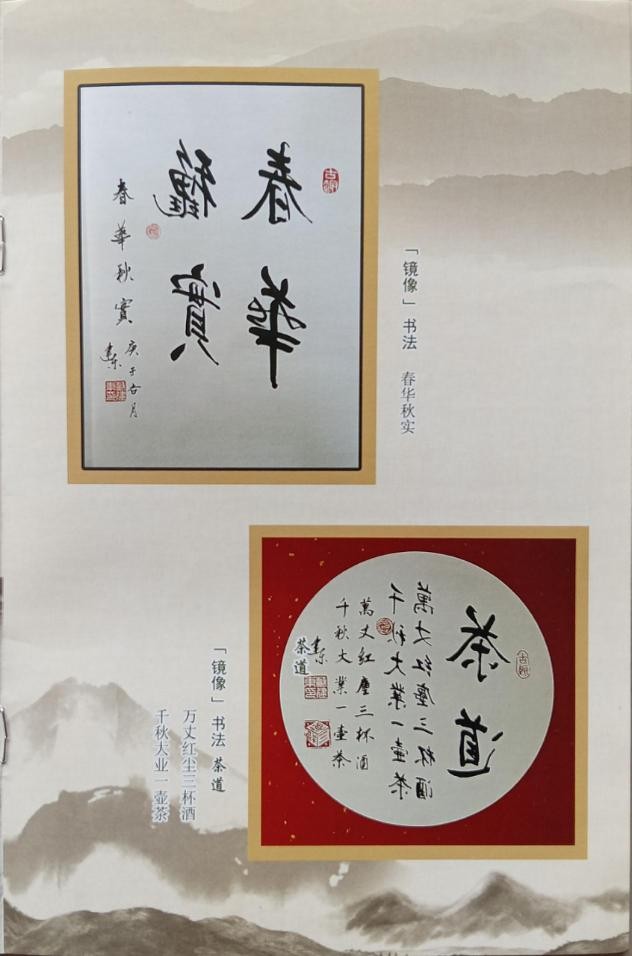 春華
穐實
春華秋實
庚子七月
「镜像」书法 春华秋实
茶道
萬丈红塵三杯酒
千秋大業一壶茶
萬丈红塵三杯酒
千秋大業一壶茶
茶道
「镜像」书法 茶道
万丈红尘三杯酒
千秋大业一壶茶